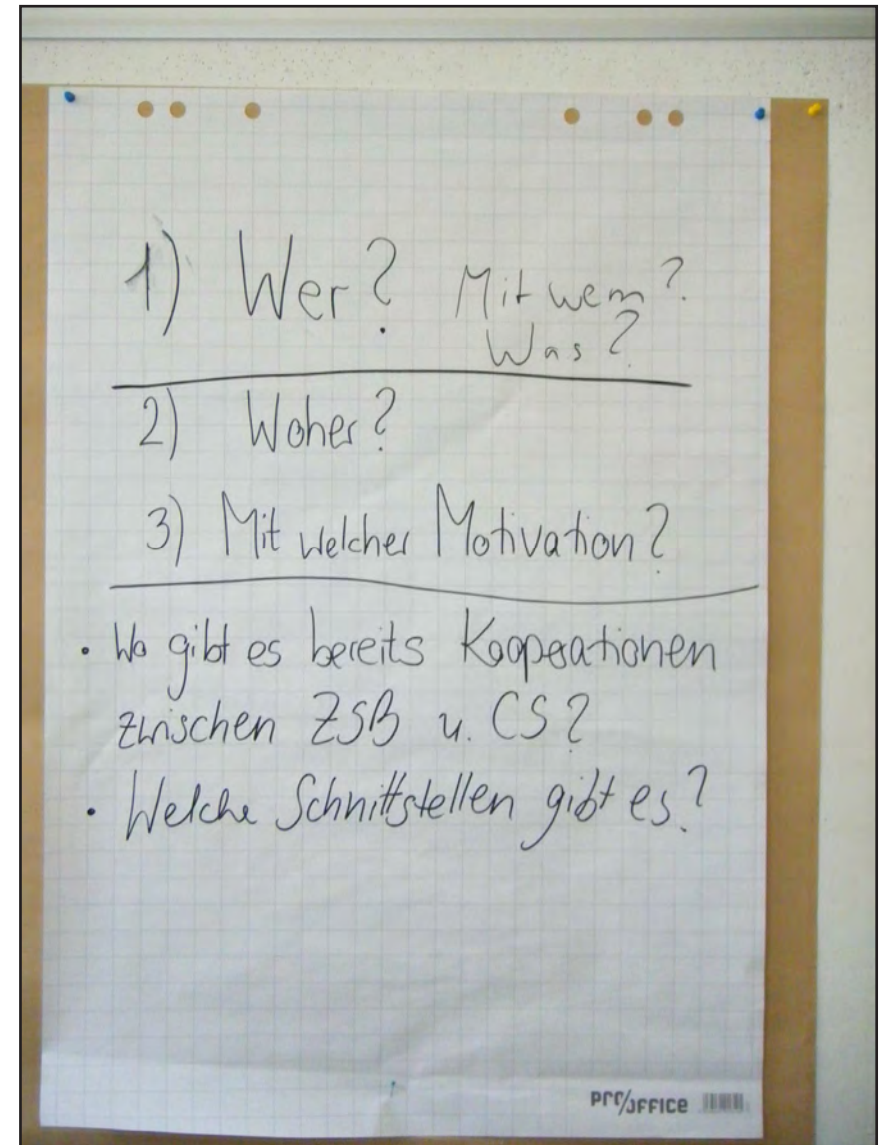 1) Wer? Mit wem?
Was?
2) Woher?
3) Mit welcher Motivation?
• Wo gibt es bereits Kooperationen
zwischen ZSB u. CS?
• Welche Schnittstellen gibt es?
pro/office